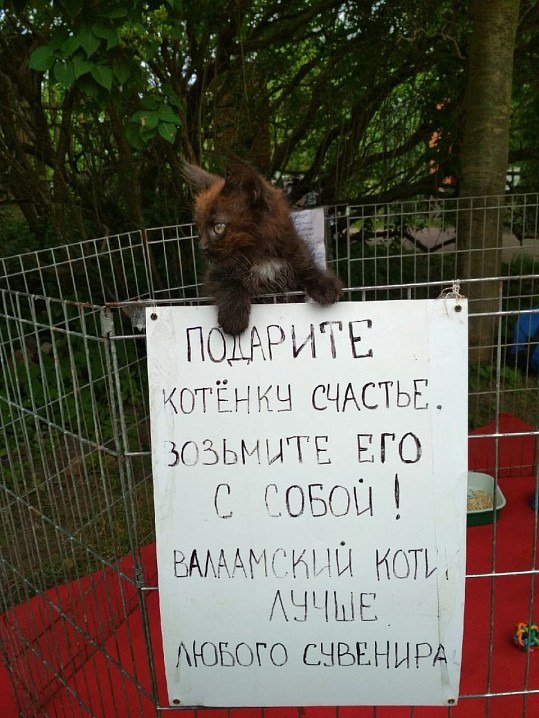 ПОДАРИТЕ
КОТЁНКУ СЧАСТЬЕ.
ВОЗЬМИТЕ ЕГО
С СОБОЙ!
ВАЛААМСКИЙ КОТИК
ЛУЧШЕ
ЛЮБОГО СУВЕНИРА